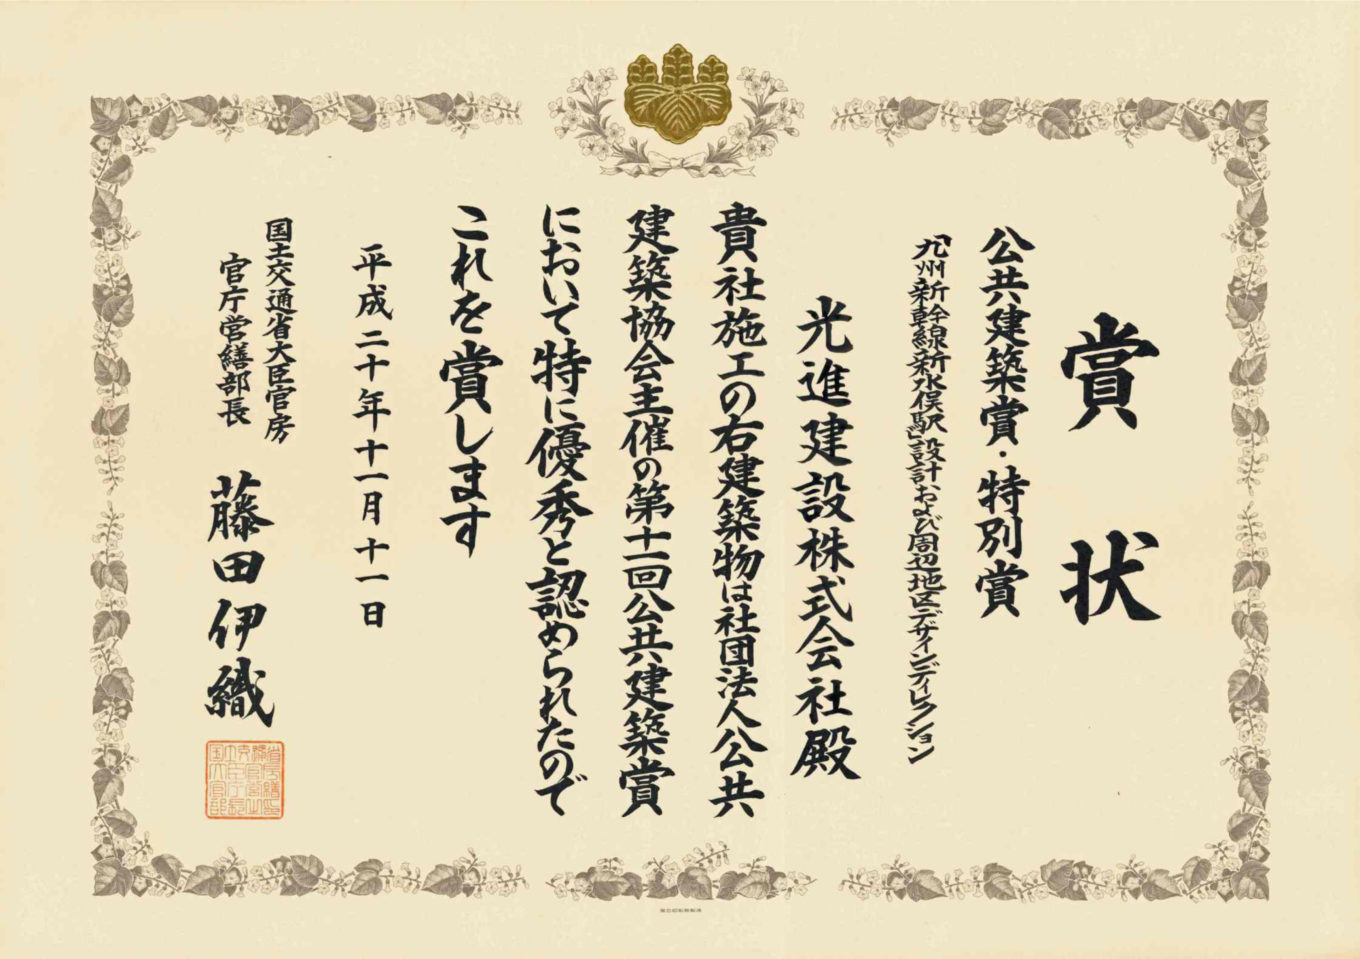 賞状
公共建築賞・特別賞
「九州新幹線新水俣駅」設計および周辺地区デザインディレクション
光進建設株式会社殿
貴社施工の右建築物は社団法人公共
建築協会主催の第十一回公共建築賞
において特に優秀と認められたので
これを賞します
平成二十年十一月十一日
国土交通省大臣官房
官庁営繕部長
藤田伊織